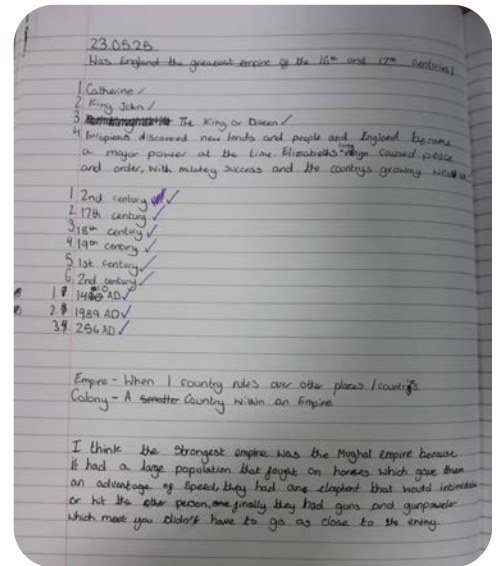 23.05.25
Was England the greatest empire of the 16th and 17th centuries?
1 Catherine
2 King John
3 The King or Queen
4 Europians discovered new lands and people and England became
a major power at the time. Elizabeths long reign caused peace
and order, with military success and the countrys growing
1 2nd century
2 17th century
3 18th century
4 19th century
5 1st century
6 2nd century
1. AD
2. 1989 AD
3. 256 AD
Empire - When 1 country rules over other places / countrys
Colony - A Country within an Empire
I think the strongest empire was the Mughal empire because
it had a large population that fought on horses which gave them
an advantage of speed, they had one that would
or hit the other person, finally they had guns and gunpowder
which meet you didn't have to go as close to the enemy.